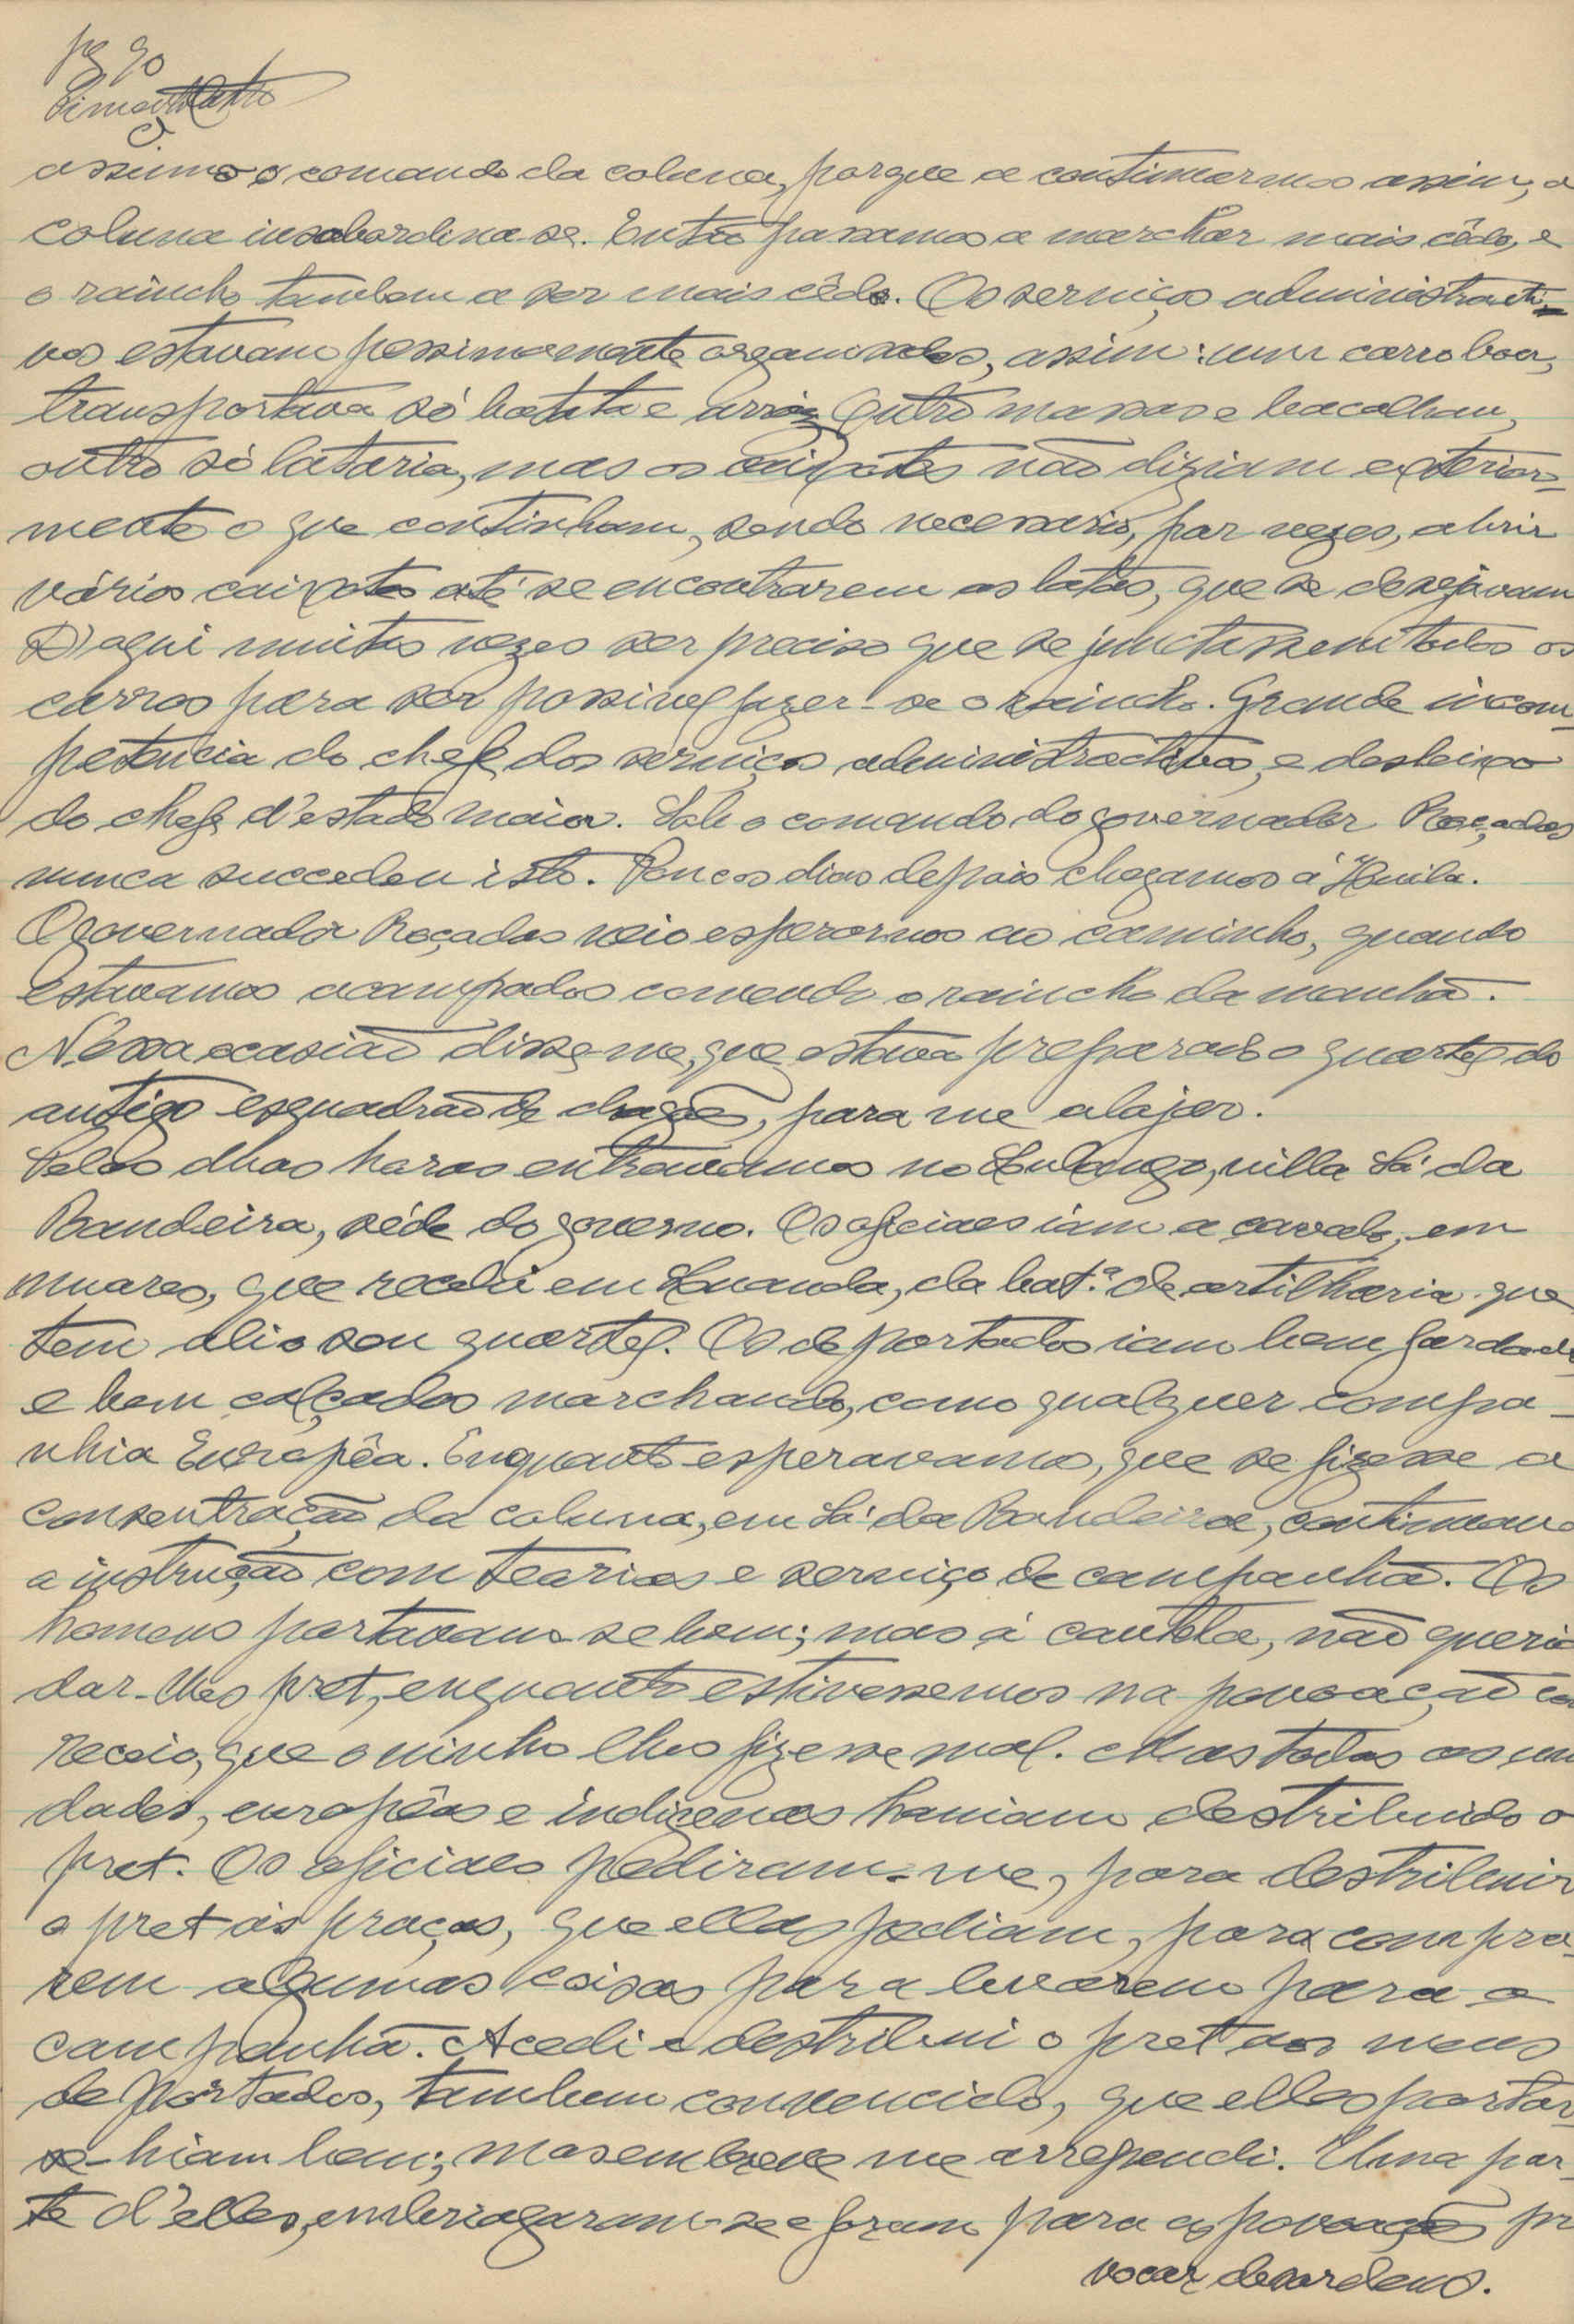 pg 90
assumo o comando da coluna, porque a continuarmos assim, a
coluna insobordina-se. Então passamos a marchar mais cêdo, e
o raincho tambem a ser mais cêdo. Os serviços administracti-
vos estavam pessimamente organisados, assim: um carro boer,
transportava só batata e arroz, outro massas e bacalhau,
outro só lataria, mas os caixotes não diziam exterior-
mente o que continham, sendo necessario, por vezes, abrir
vários caixotes até se encontrarem as latas, que se desejavam
D'aqui muitas vezes ser preciso que se junctassem todos os
carros para ser possivel fazer-se o raincho. Grande incom-
petencia do chefe dos serviços administractivos, e desleixo
do chefe d'estado maior. Sob o comando do governador Roçadas
nunca succedeu isto. Poucos dias depois chegamos á Huila.
O governador Roçadas veio esperarnos ao caminho, quando
estavamos acampados comendo o raincho da manhã.
N'essa ocasião disse-me, que estava preparado o quartel do
antigo esquadrão de dragões, para me alojar.
Pelas duas horas entravamos no Lubango, villa Sá da
Bandeira, séde do governo. Os oficiaes iam a cavalo, em
muares, que recebi em Luanda, da bat.ª de artilharia que
tem ali o seu quartel. Os deportados iam bem fardados
e bem calçados marchando, como qualquer compa-
nhia Européa. Enquanto esperavamos, que se fizesse a
consentração da coluna, em Sá da Bandeira, continuava
a instrução com teorias e serviço de campanha. Os
homens portavam-se bem; mas á cautela, não queria
dar-lhes pret, enquanto estivessemos na povoação com
receio, que o vinho lhes fizesse mal. Mas todas as uni
dades, européas e indigenas haviam destribuido o
pret. Os oficiaes pediram-me, para destribuir
o pret ás praças, que ellas pediam, para compra-
rem algumas coisas para levarem para a
campanha. Acedi e destribui o pret aos meus
deportados, tambem convencido, que elles portar-
se-hiam bem; mas em breve me arrependi. Uma par-
te d'elles, embriagaram-se e foram para a povoação pro
vocar desordens.